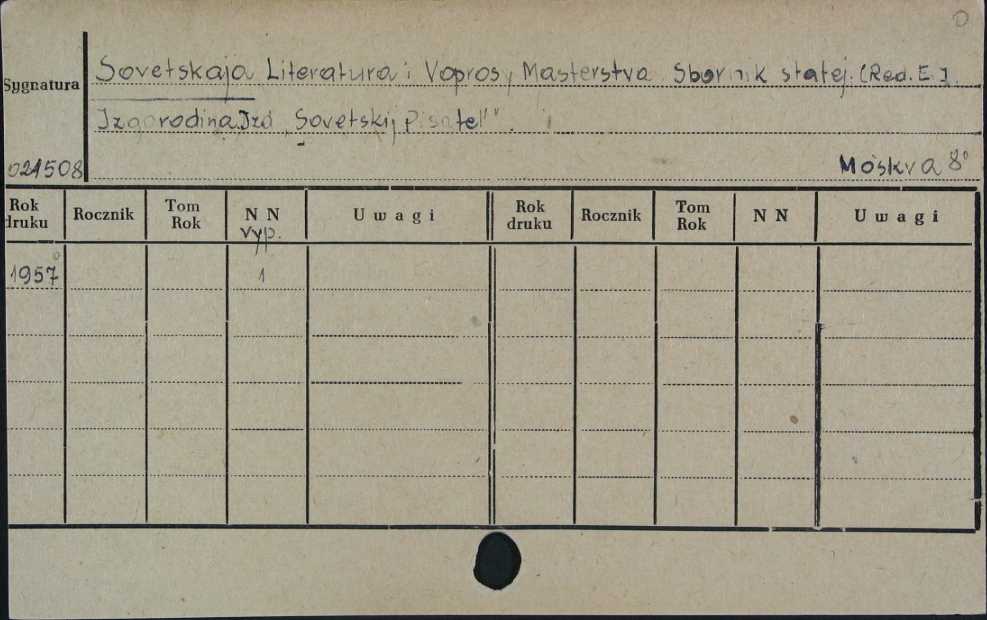 0
Sygnatura
Sovetskaja Literatura i Voprosy Masterstva. Sbornik statej. (Red. E.I.
Izgorodina Izd „Sovetskij pisatel'".
021508
Moskva 8°
Rok druku Rocznik Tom Rok N N vyp. Uwagi Rok druku Rocznik Tom Rok N N Uwagi
1957 1